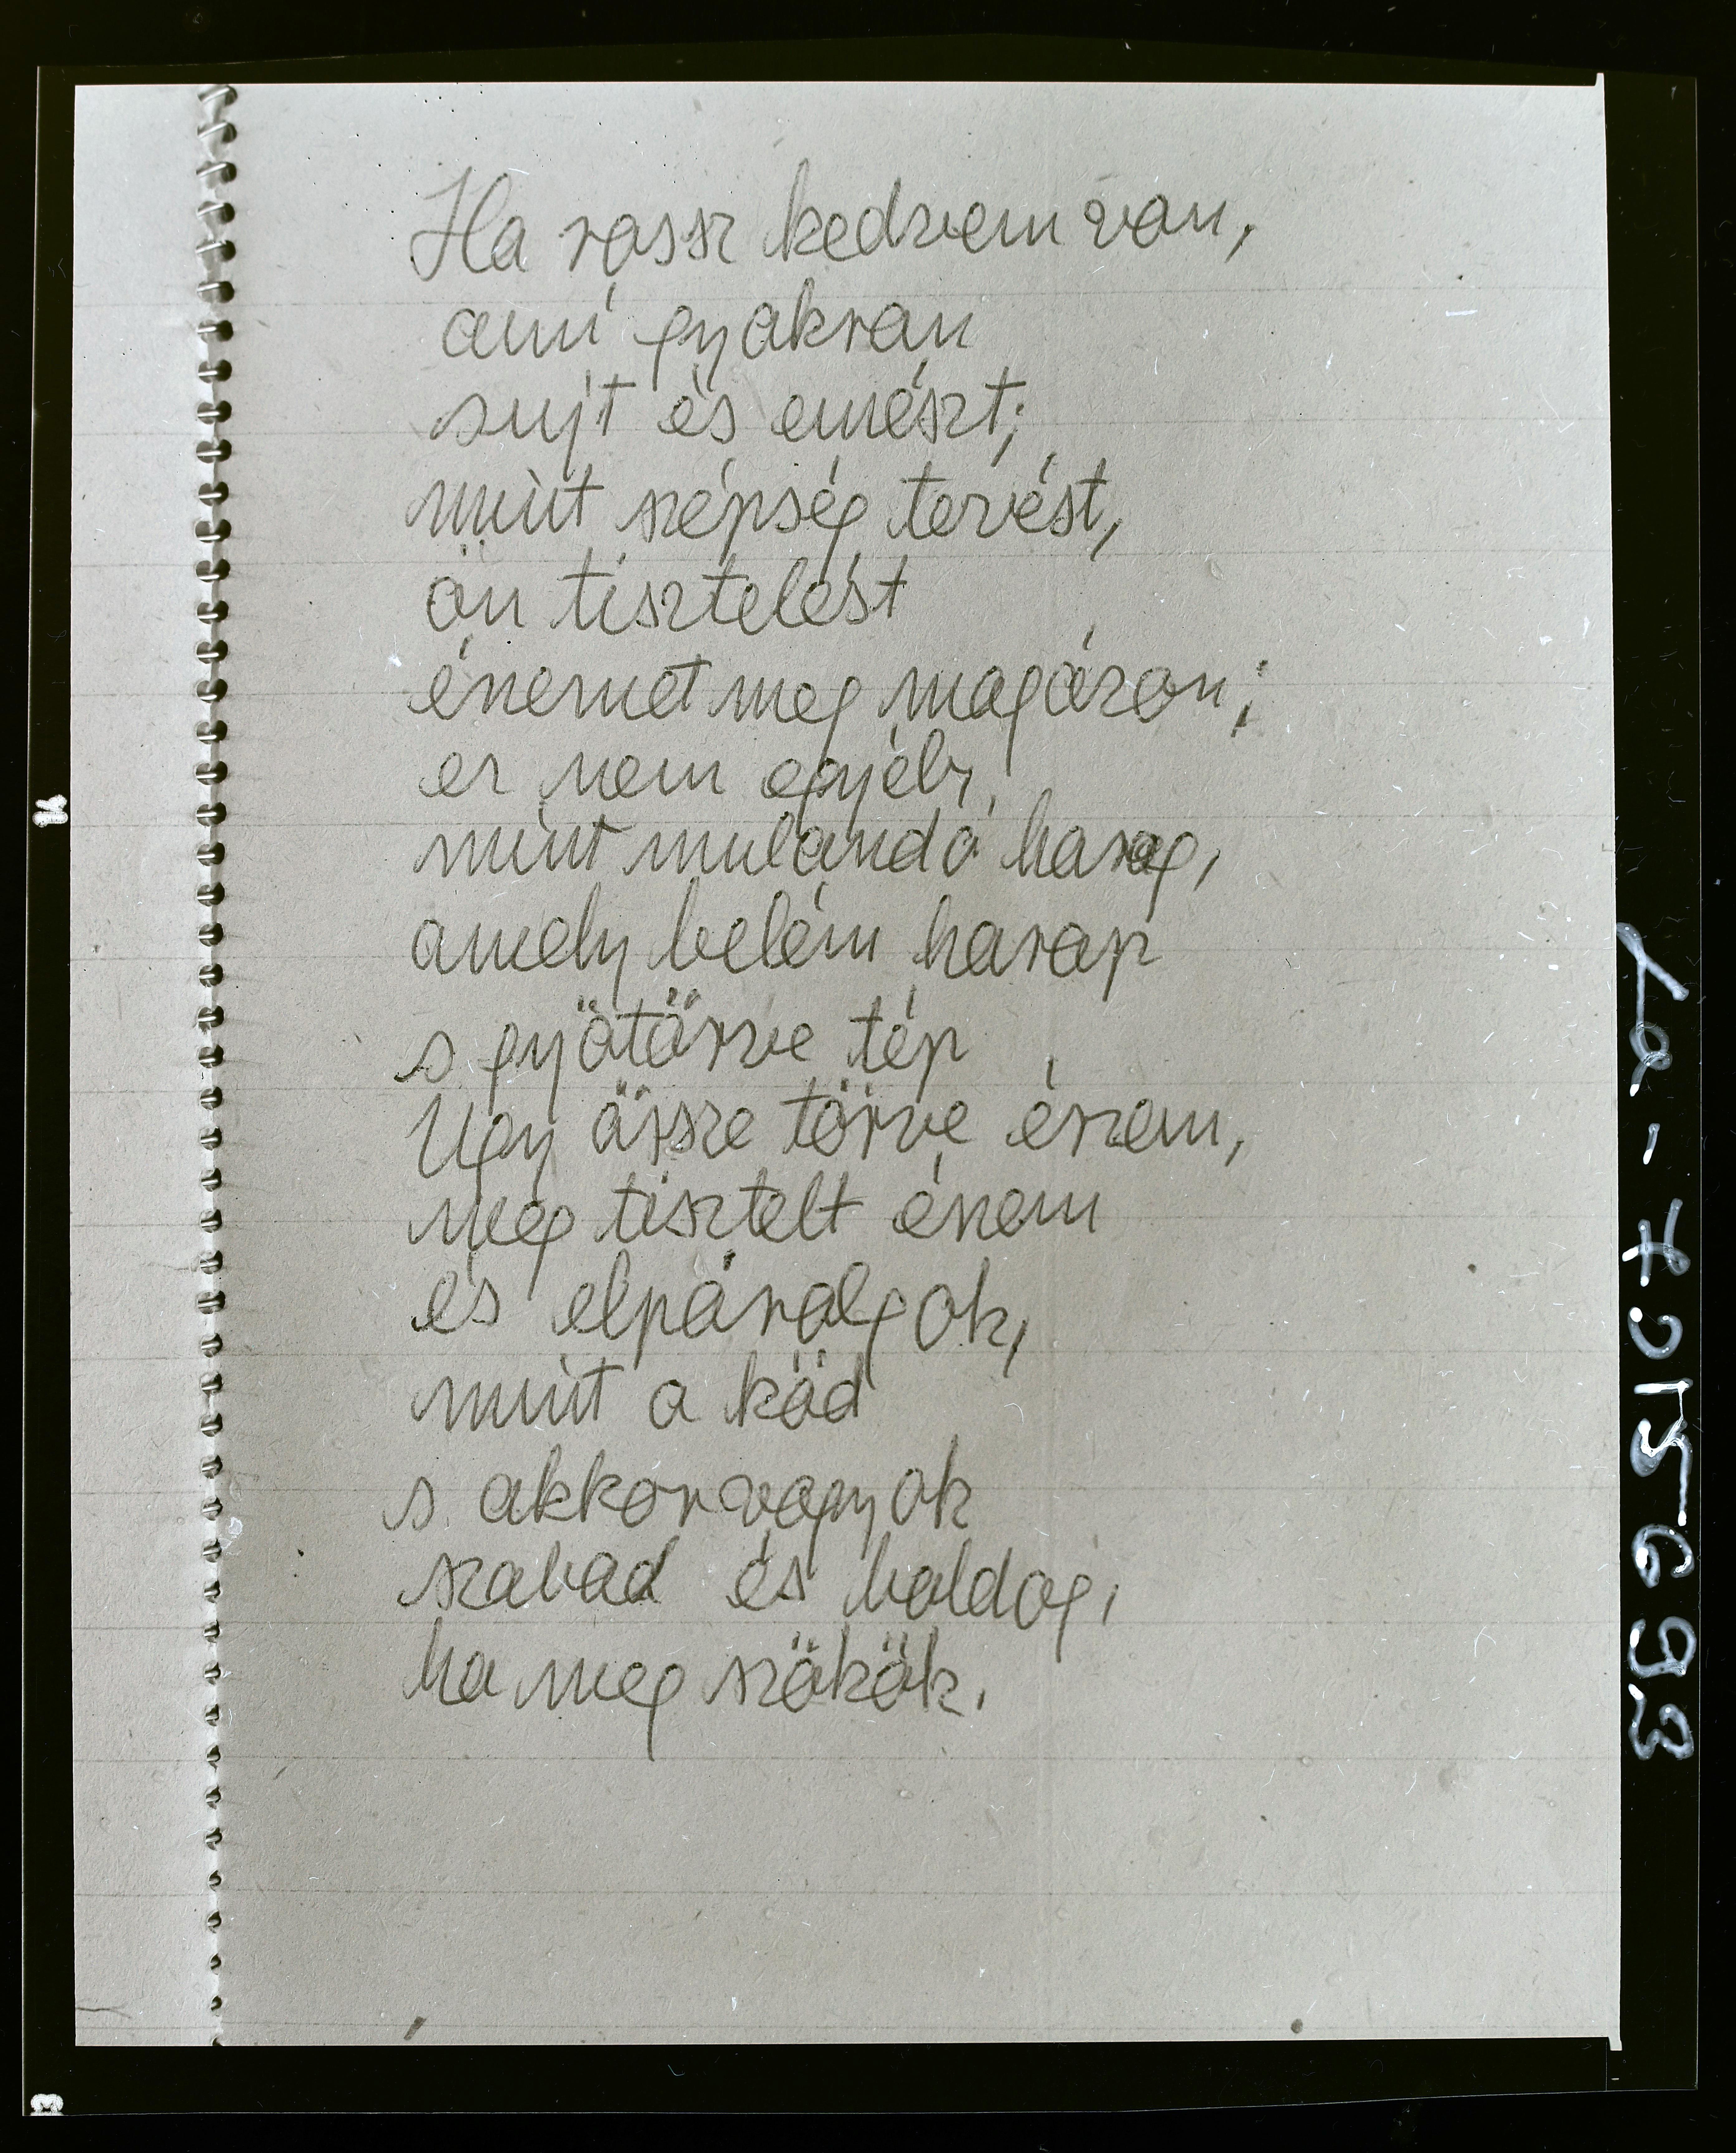 Ha rossz kedvem van,
ami gyakran
sujt és emészt;
mint szépség tervést,
ön tisztelést
énemet meg magázom;
ez nem egyéb,
mint mulandó harag,
amely belém harap
s gyötörve tép
Ugy össze törve észem,
meg tisztelt észem
és elpárolgok,
mint a köd
s akkor vagyok
szabad és boldog,
ha meg szököm.